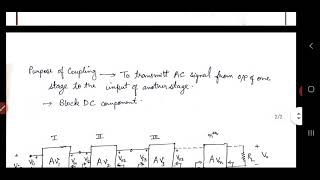 Purpose of Coupling → To transmit AC signal from O/P of one
stage to the input of another stage.
→ Block DC component.
2/2
I II III nth
AV1 AV2 AV3 AVn RL Vo